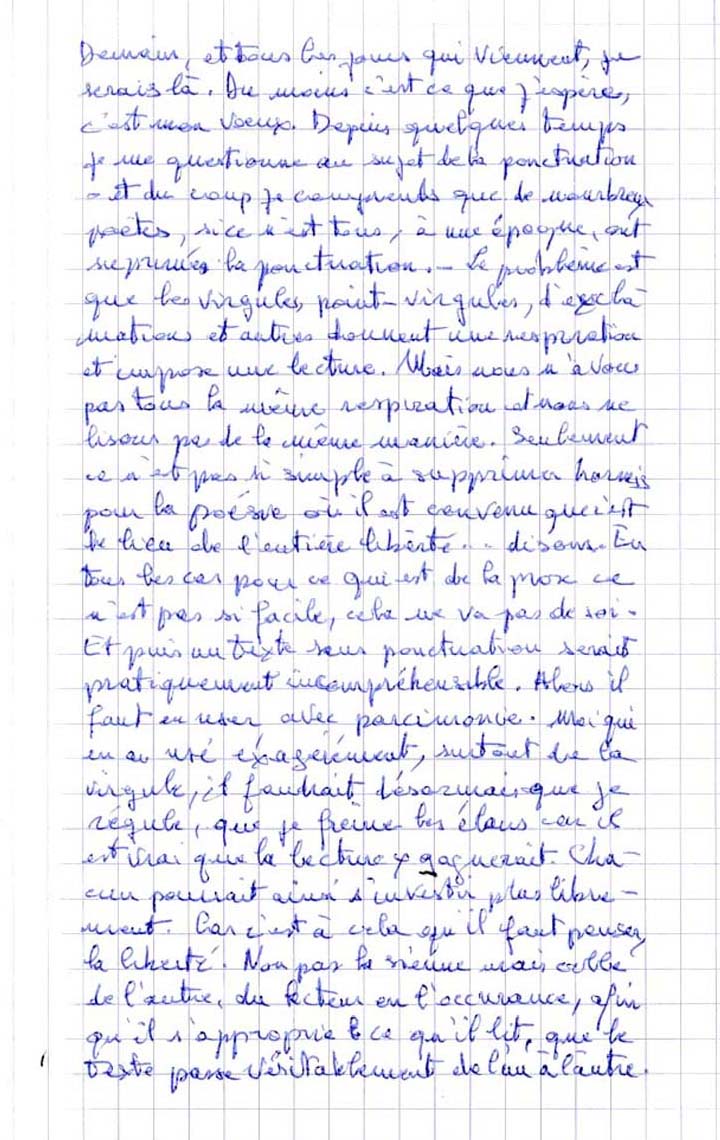 Demain, et tous les jours qui viennent, je
serais là. Du moins c'est ce que j'espère,
c'est mon voeux. Depuis quelques temps
je me questionne au sujet de la ponctuation
- et du coup je comprends que de nombreux
poètes, si ce n'est tous, à une époque, ont
suprimés la ponctuation. - Le problème est
que les virgules, point-virgules, d'excla
mations et autres donnent une respiration
et impose une lecture. Mais nous n'avons
pas tous la même respiration et nous ne
lisons pas de la même manière. Seulement
ce n'est pas si simple à supprimer hormis
pour la poésie où il est convenu que c'est
le lieu de l'entière liberté... disons. En
tous les cas pour ce qui est de la prose ce
n'est pas si facile, cela ne va pas de soi.
Et puis un texte sans ponctuation serait
pratiquement incompréhensible. Alors il
faut en user avec parcimonie. Moi qui
en ai usé exagérément, surtout de la
virgule, il faudrait désormais que je
régule, que je freine les élans car il
est vrai que la lecture y gagnerait. Cha-
cun pourrait ainsi s'investir plus libre-
ment. Car c'est à cela qu'il faut penser,
la liberté. Non pas la sienne mais celle
de l'autre, du lecteur en l'occurance, afin
qu'il s'approprie ce qu'il lit, que le
texte passe véritablement de l'un à l'autre.